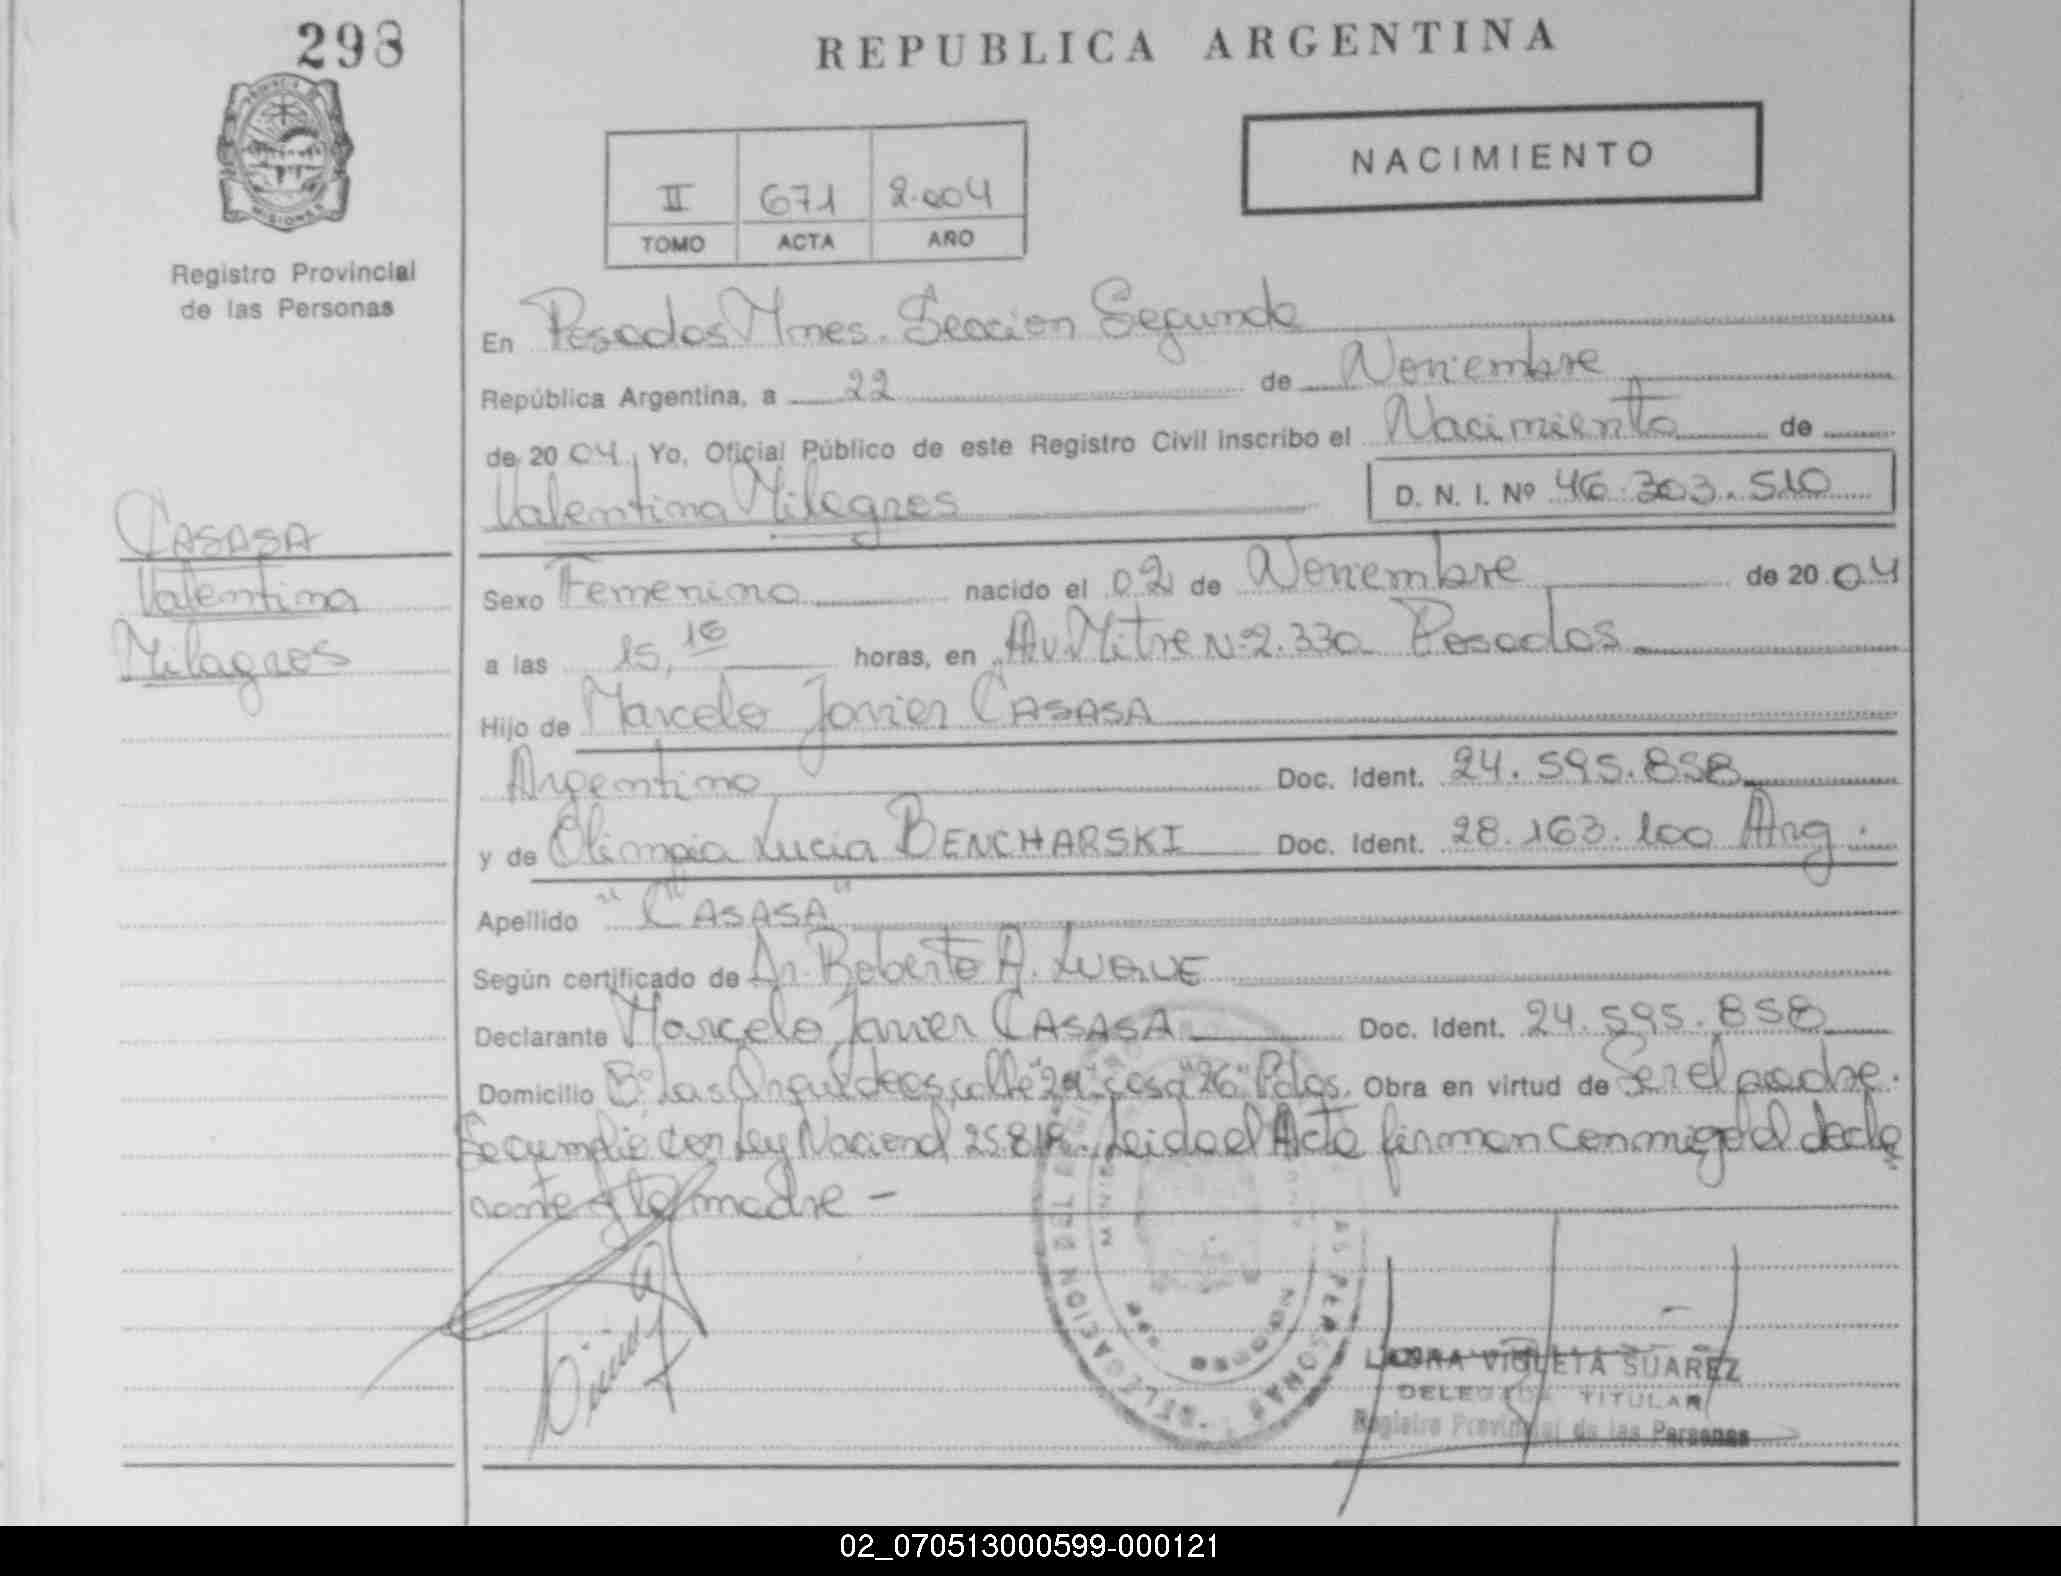 298
REPUBLICA ARGENTINA
NACIMIENTO
II 671 2.004
TOMO ACTA AÑO
PROVINCIA DE
MISIONES
Registro Provincial
de las Personas
En Posadas Mnes. Sección Segunda
República Argentina, a 22 de Noviembre
de 2004. Yo, Oficial Público de este Registro Civil inscribo el Nacimiento de
Valentina Milagros D. N. I. Nº 46.303.510
CASASA
Valentina
Milagros
Sexo Femenino nacido el 02 de Noviembre de 2004
a las 15,16 horas, en Av. Mitre Nº 2.330 Posadas
Hijo de Marcelo Javier CASASA
Argentino Doc. Ident. 24.595.858
y de Olimpia Lucia BENCHARSKI Doc. Ident. 28.163.100 Arg.
Apellido "CASASA"
Según certificado de Dr. Roberto A. LUQUE
Declarante Marcelo Javier CASASA Doc. Ident. 24.595.858
Domicilio Bº Las Orquideas, calle "29" casa "26" Pdas. Obra en virtud de Ser el padre.
Se cumplio con Ley Nacional 25.818. Leida el Acta firman conmigo el decla
rante y la madre -
DELEGACION
AS PERSONAS
LAURA VIOLETA SUAREZ
DELEGADA TITULAR
Registro Provincial de las Personas
02_070513000599-000121